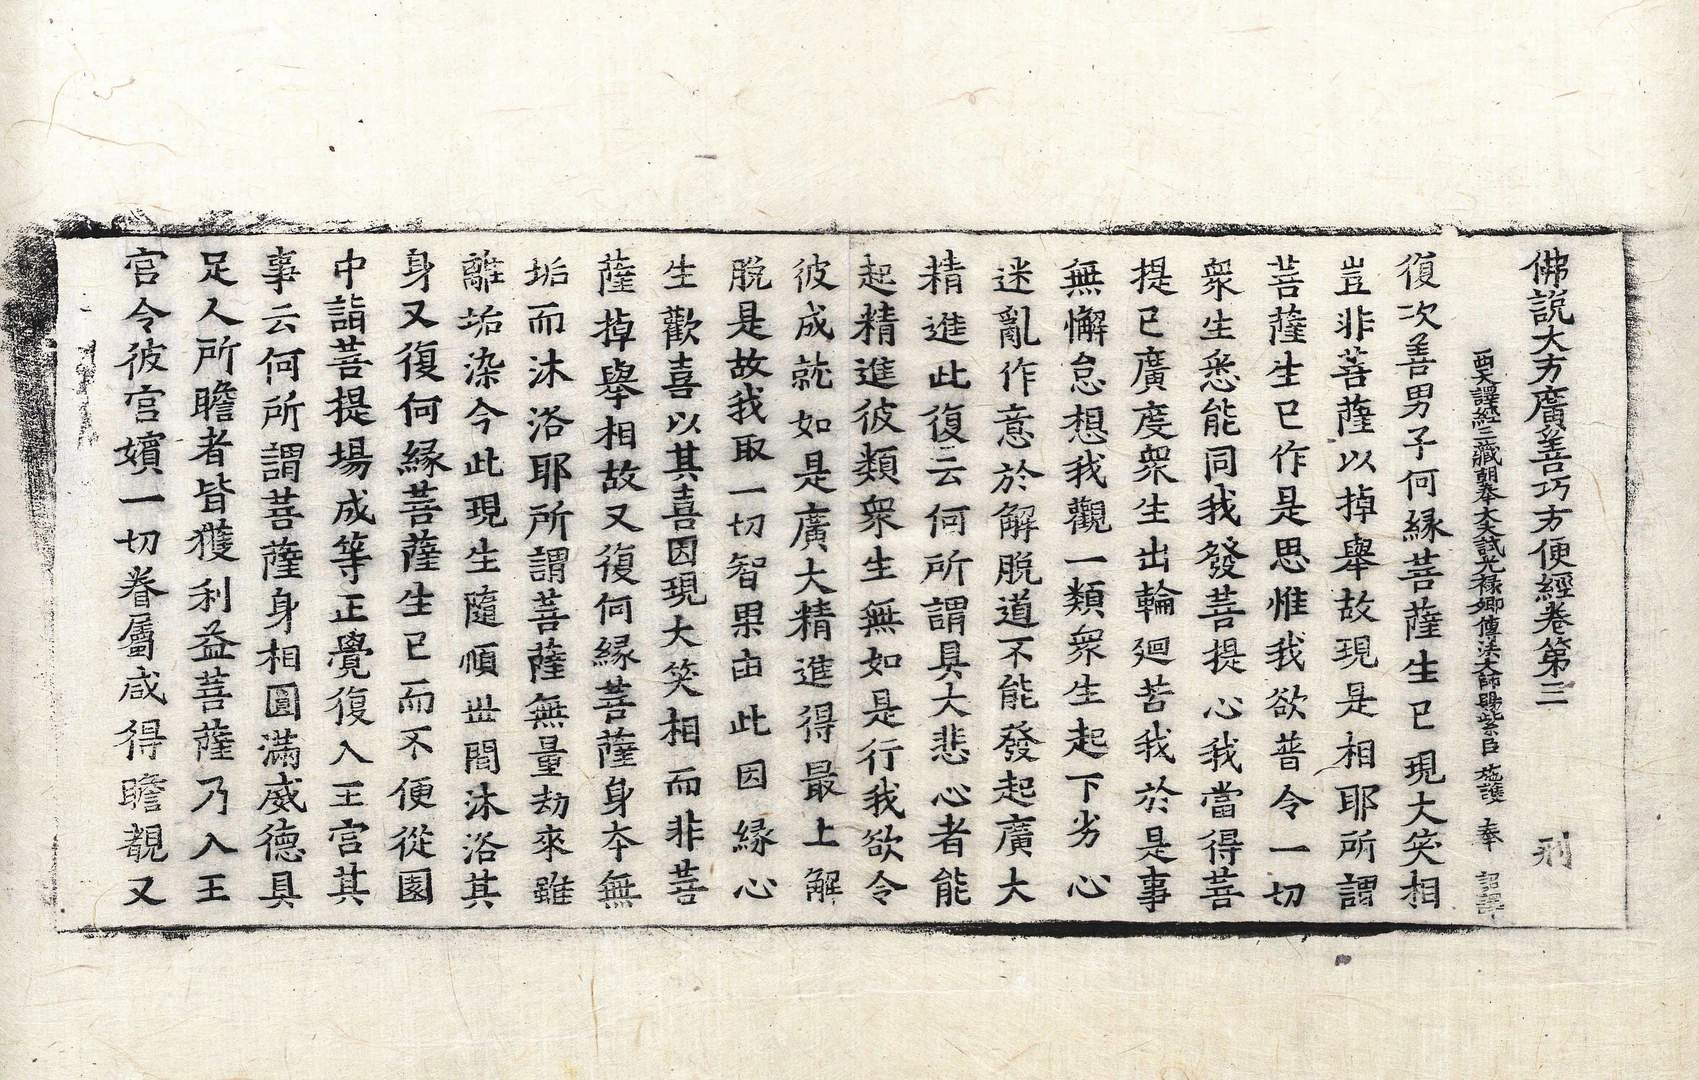 佛說大方廣善巧方便經卷第三 刑
西天譯經三藏朝奉大夫試光祿卿傳法大師賜紫臣施護奉 詔譯
復次善男子何緣菩薩生已現大笑相
豈非菩薩以掉舉故現是相耶所謂
菩薩生已作是思惟我欲普令一切
衆生悉能同我發菩提心我當得菩
提已廣度衆生出輪迴苦我於是事
無懈怠想我觀一類衆生起下劣心
迷亂作意於解脫道不能發起廣大
精進此復云何所謂具大悲心者能
起精進彼類衆生無如是行我欲令
彼成就如是廣大精進得最上解
脫是故我取一切智果由此因緣心
生歡喜以其喜因現大笑相而非菩
薩掉舉相故又復何緣菩薩身本無
垢而沐浴耶所謂菩薩無量劫來雖
離垢染今此現生隨順世間沐浴其
身又復何緣菩薩生已而不便從園
中詣菩提場成等正覺復入王宮其
事云何所謂菩薩身相圓滿威德具
足人所瞻者皆獲利益菩薩乃入王
宮令彼宮嬪一切眷屬咸得瞻覩又